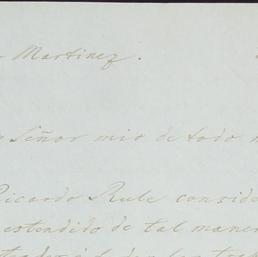 Martinez.
Señor mio de todo
Ricardo Rule conside
estendido de tal maner